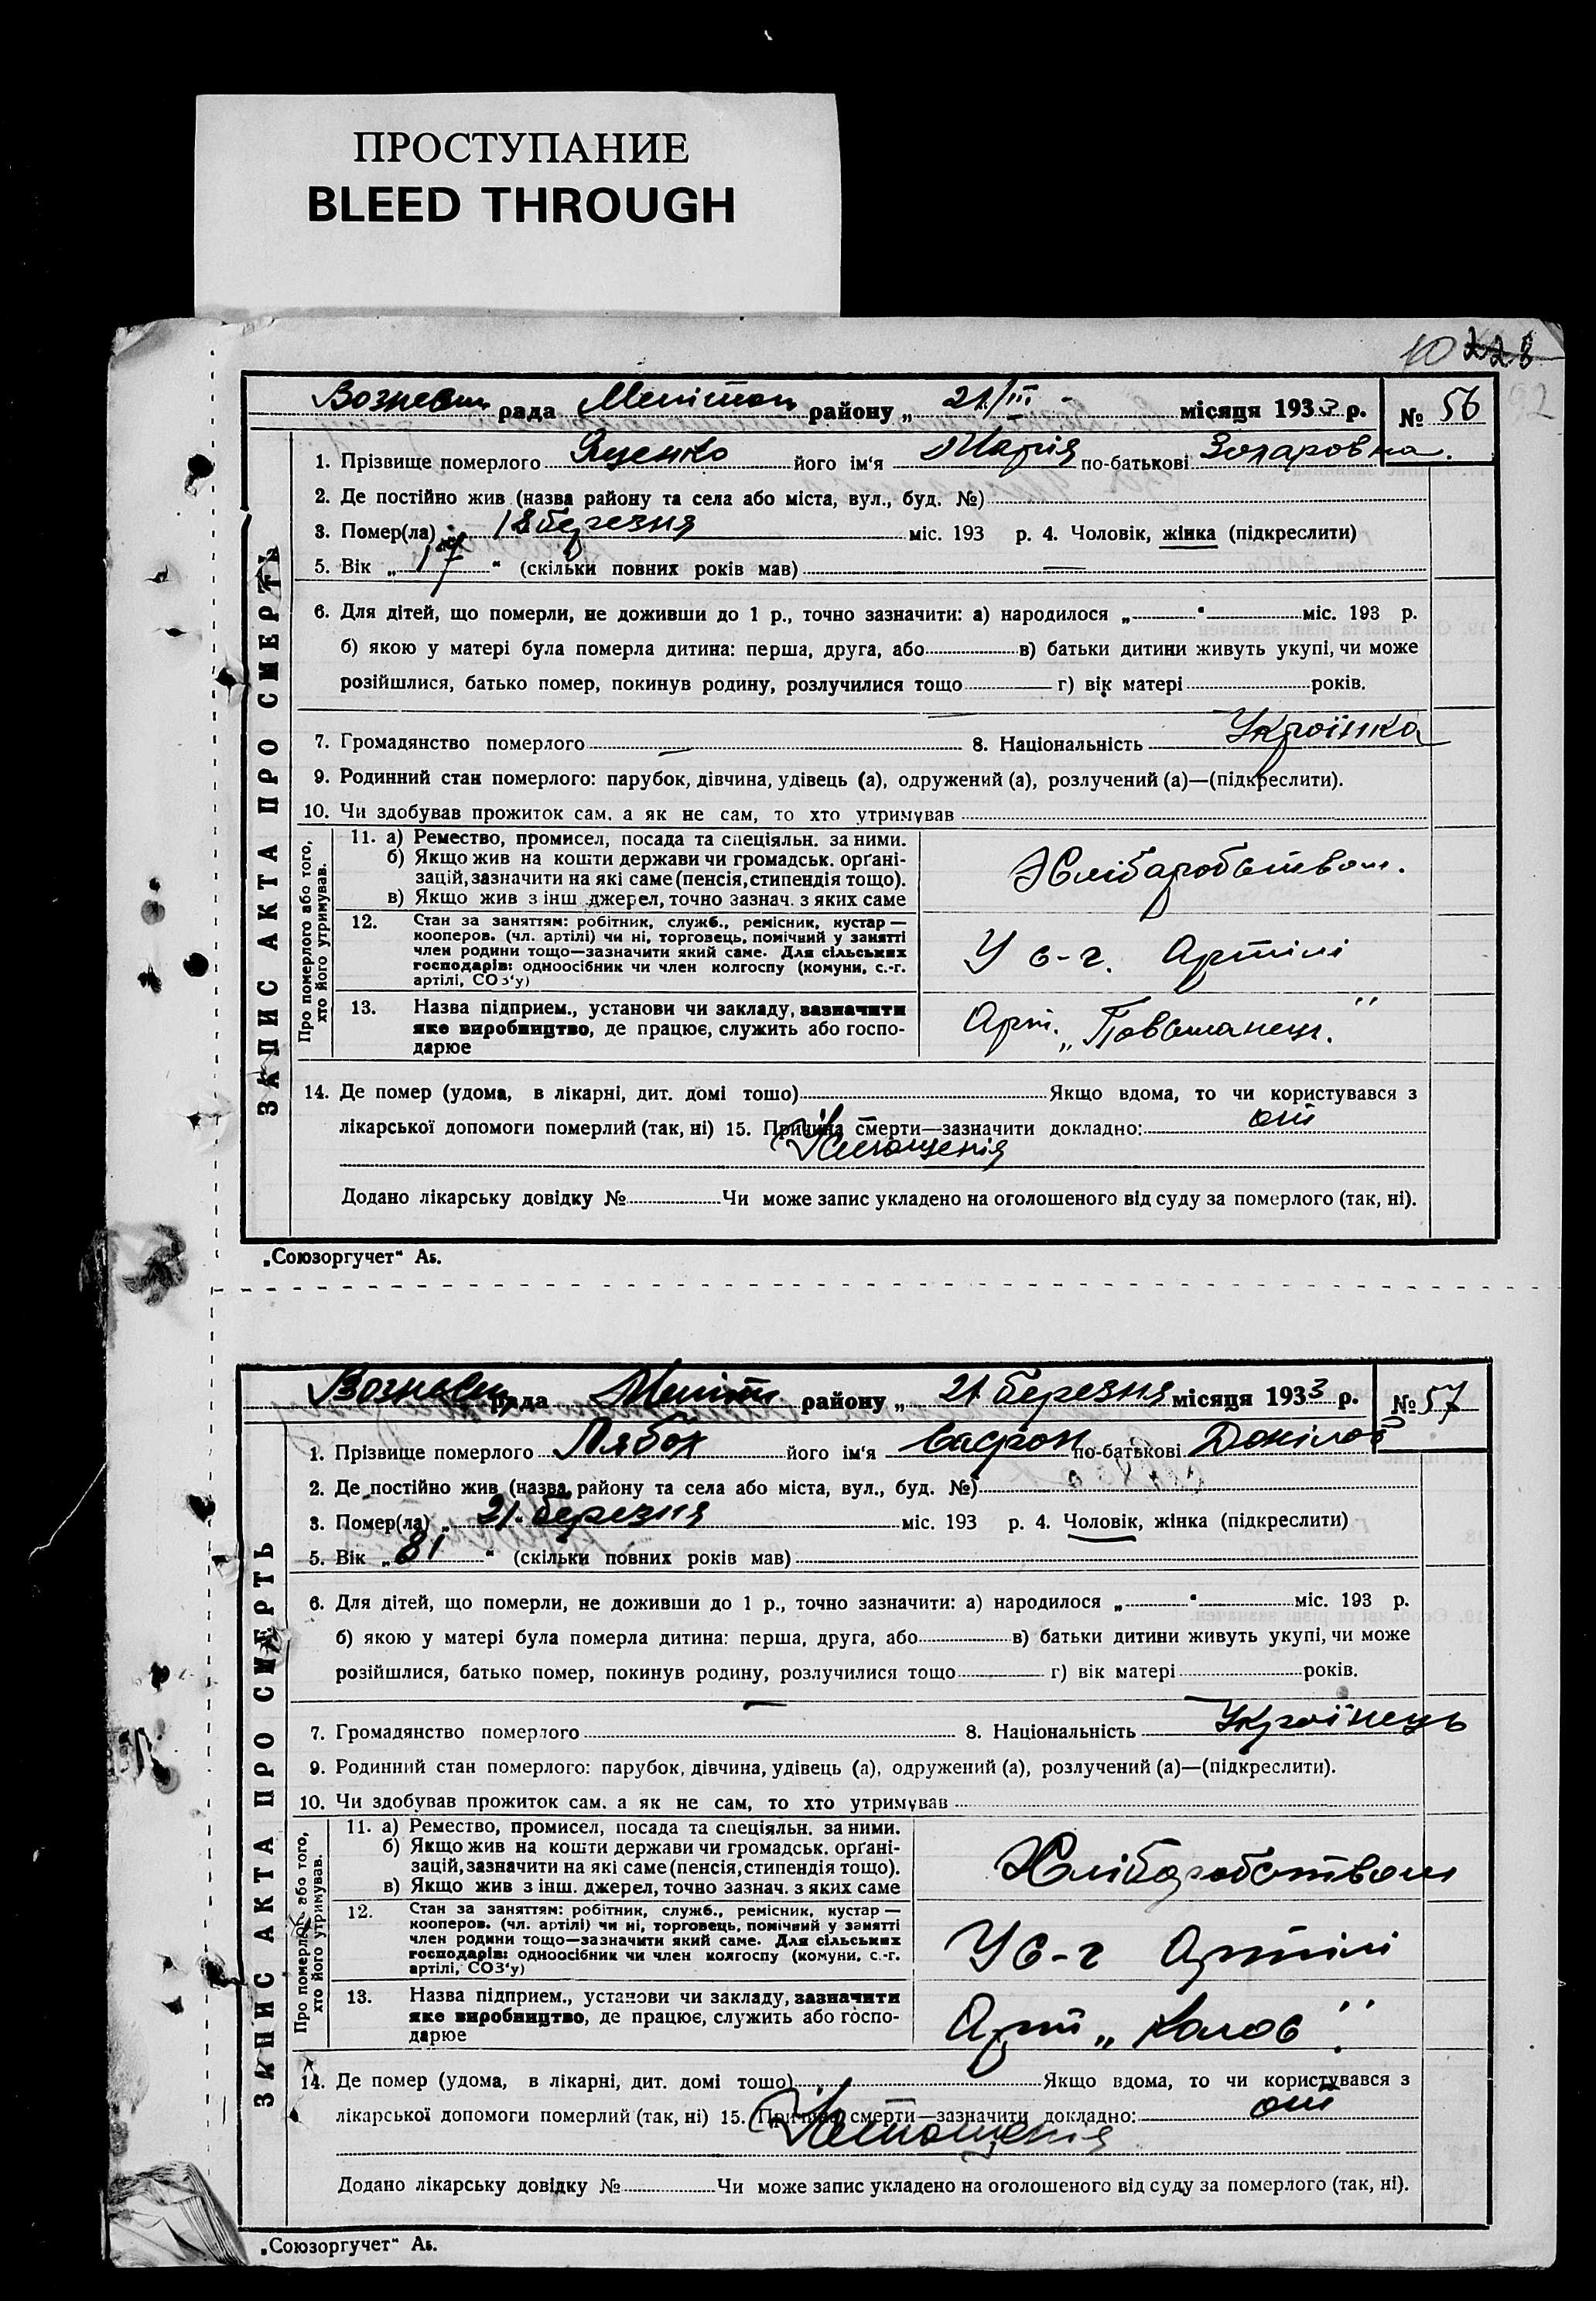 ПРОСТУПАНИЕ
BLEED THROUGH
10 228
ЗАПИС АКТА ПРО СМЕРТЬ
Вознесен рада Меліток району „ 21/III - місяця 1933 р. № 56
1. Прізвище померлого Яценко його ім'я Марія по-батькові Захаровна.
2. Де постійно жив (назва району та села або міста, вул., буд. №)
3. Помер(ла) „ 18 березня міс. 193 р. 4. Чоловік, жінка (підкреслити)
5. Вік „ 17 “ (скільки повних років мав) —
6. Для дітей, що померли, не доживши до 1 р., точно зазначити: а) народилося „ “ міс. 193 р.
б) якою у матері була померла дитина: перша, друга, або в) батьки дитини живуть укупі, чи може
розійшлися, батько помер, покинув родину, розлучилися тощо г) вік матері років.
7. Громадянство померлого — 8. Національність Українка
9. Родинний стан померлого: парубок, дівчина, удівець (а), одружений (а), розлучений (а)—(підкреслити).
10. Чи здобував прожиток сам, а як не сам, то хто утримував
Про померлого або того, хто його утримував.
11. а) Ремество, промисел, посада та спеціяльн. за ними.
б) Якщо жив на кошти держави чи громадськ. орґані-
зацій, зазначити на які саме (пенсія, стипендія тощо).
в) Якщо жив з інш. джерел, точно зазнач. з яких саме
Хліборобством.
12. Стан за заняттям: робітник, служб., ремісник, кустар —
кооперов. (чл. артілі) чи ні, торговець, помічний у занятті
член родини тощо—зазначити який саме. Для сільських
господарів: одноосібник чи член колгоспу (комуни, с.-г.
артілі, СОЗ'у)
У с-г. Артілі
13. Назва підприєм., установи чи закладу, зазначити
яке виробництво, де працює, служить або госпо-
дарює
Арт. „Повстанець.“
14. Де помер (удома, в лікарні, дит. домі тощо) Якщо вдома, то чи користувався з
лікарської допомоги померлий (так, ні) 15. Причина смерти—зазначити докладно: от
Истощенія
Додано лікарську довідку № Чи може запис укладено на оголошеного від суду за померлого (так, ні).
„Союзоргучет“ Аб.
ЗАПИС АКТА ПРО СМЕРТЬ
Вознесен рада Меліт району „ 21 березня місяця 1933 р. № 57
1. Прізвище померлого Лябох його ім'я Сафрон по-батькові Данілов
2. Де постійно жив (назва району та села або міста, вул., буд. №)
3. Помер(ла) „ 21 “ березня міс. 193 р. 4. Чоловік, жінка (підкреслити)
5. Вік „ 81 “ (скільки повних років мав)
6. Для дітей, що померли, не доживши до 1 р., точно зазначити: а) народилося „ “ міс. 193 р.
б) якою у матері була померла дитина: перша, друга, або в) батьки дитини живуть укупі, чи може
розійшлися, батько помер, покинув родину, розлучилися тощо г) вік матері років.
7. Громадянство померлого — 8. Національність Українець
9. Родинний стан померлого: парубок, дівчина, удівець (а), одружений (а), розлучений (а)—(підкреслити).
10. Чи здобував прожиток сам, а як не сам, то хто утримував
Про померлого або того, хто його утримував.
11. а) Ремество, промисел, посада та спеціяльн. за ними.
б) Якщо жив на кошти держави чи громадськ. орґані-
зацій, зазначити на які саме (пенсія, стипендія тощо).
в) Якщо жив з інш. джерел, точно зазнач. з яких саме
Хліборобством
12. Стан за заняттям: робітник, служб., ремісник, кустар —
кооперов. (чл. артілі) чи ні, торговець, помічний у занятті
член родини тощо—зазначити який саме. Для сільських
господарів: одноосібник чи член колгоспу (комуни, с.-г.
артілі, СОЗ'у)
У с-г Артілі
13. Назва підприєм., установи чи закладу, зазначити
яке виробництво, де працює, служить або госпо-
дарює
Арт „Колос“.
14. Де помер (удома, в лікарні, дит. домі тощо) Якщо вдома, то чи користувався з
лікарської допомоги померлий (так, ні) 15. Причина смерти—зазначити докладно: от
Истощенія
Додано лікарську довідку № Чи може запис укладено на оголошеного від суду за померлого (так, ні).
„Союзоргучет“ Аб.